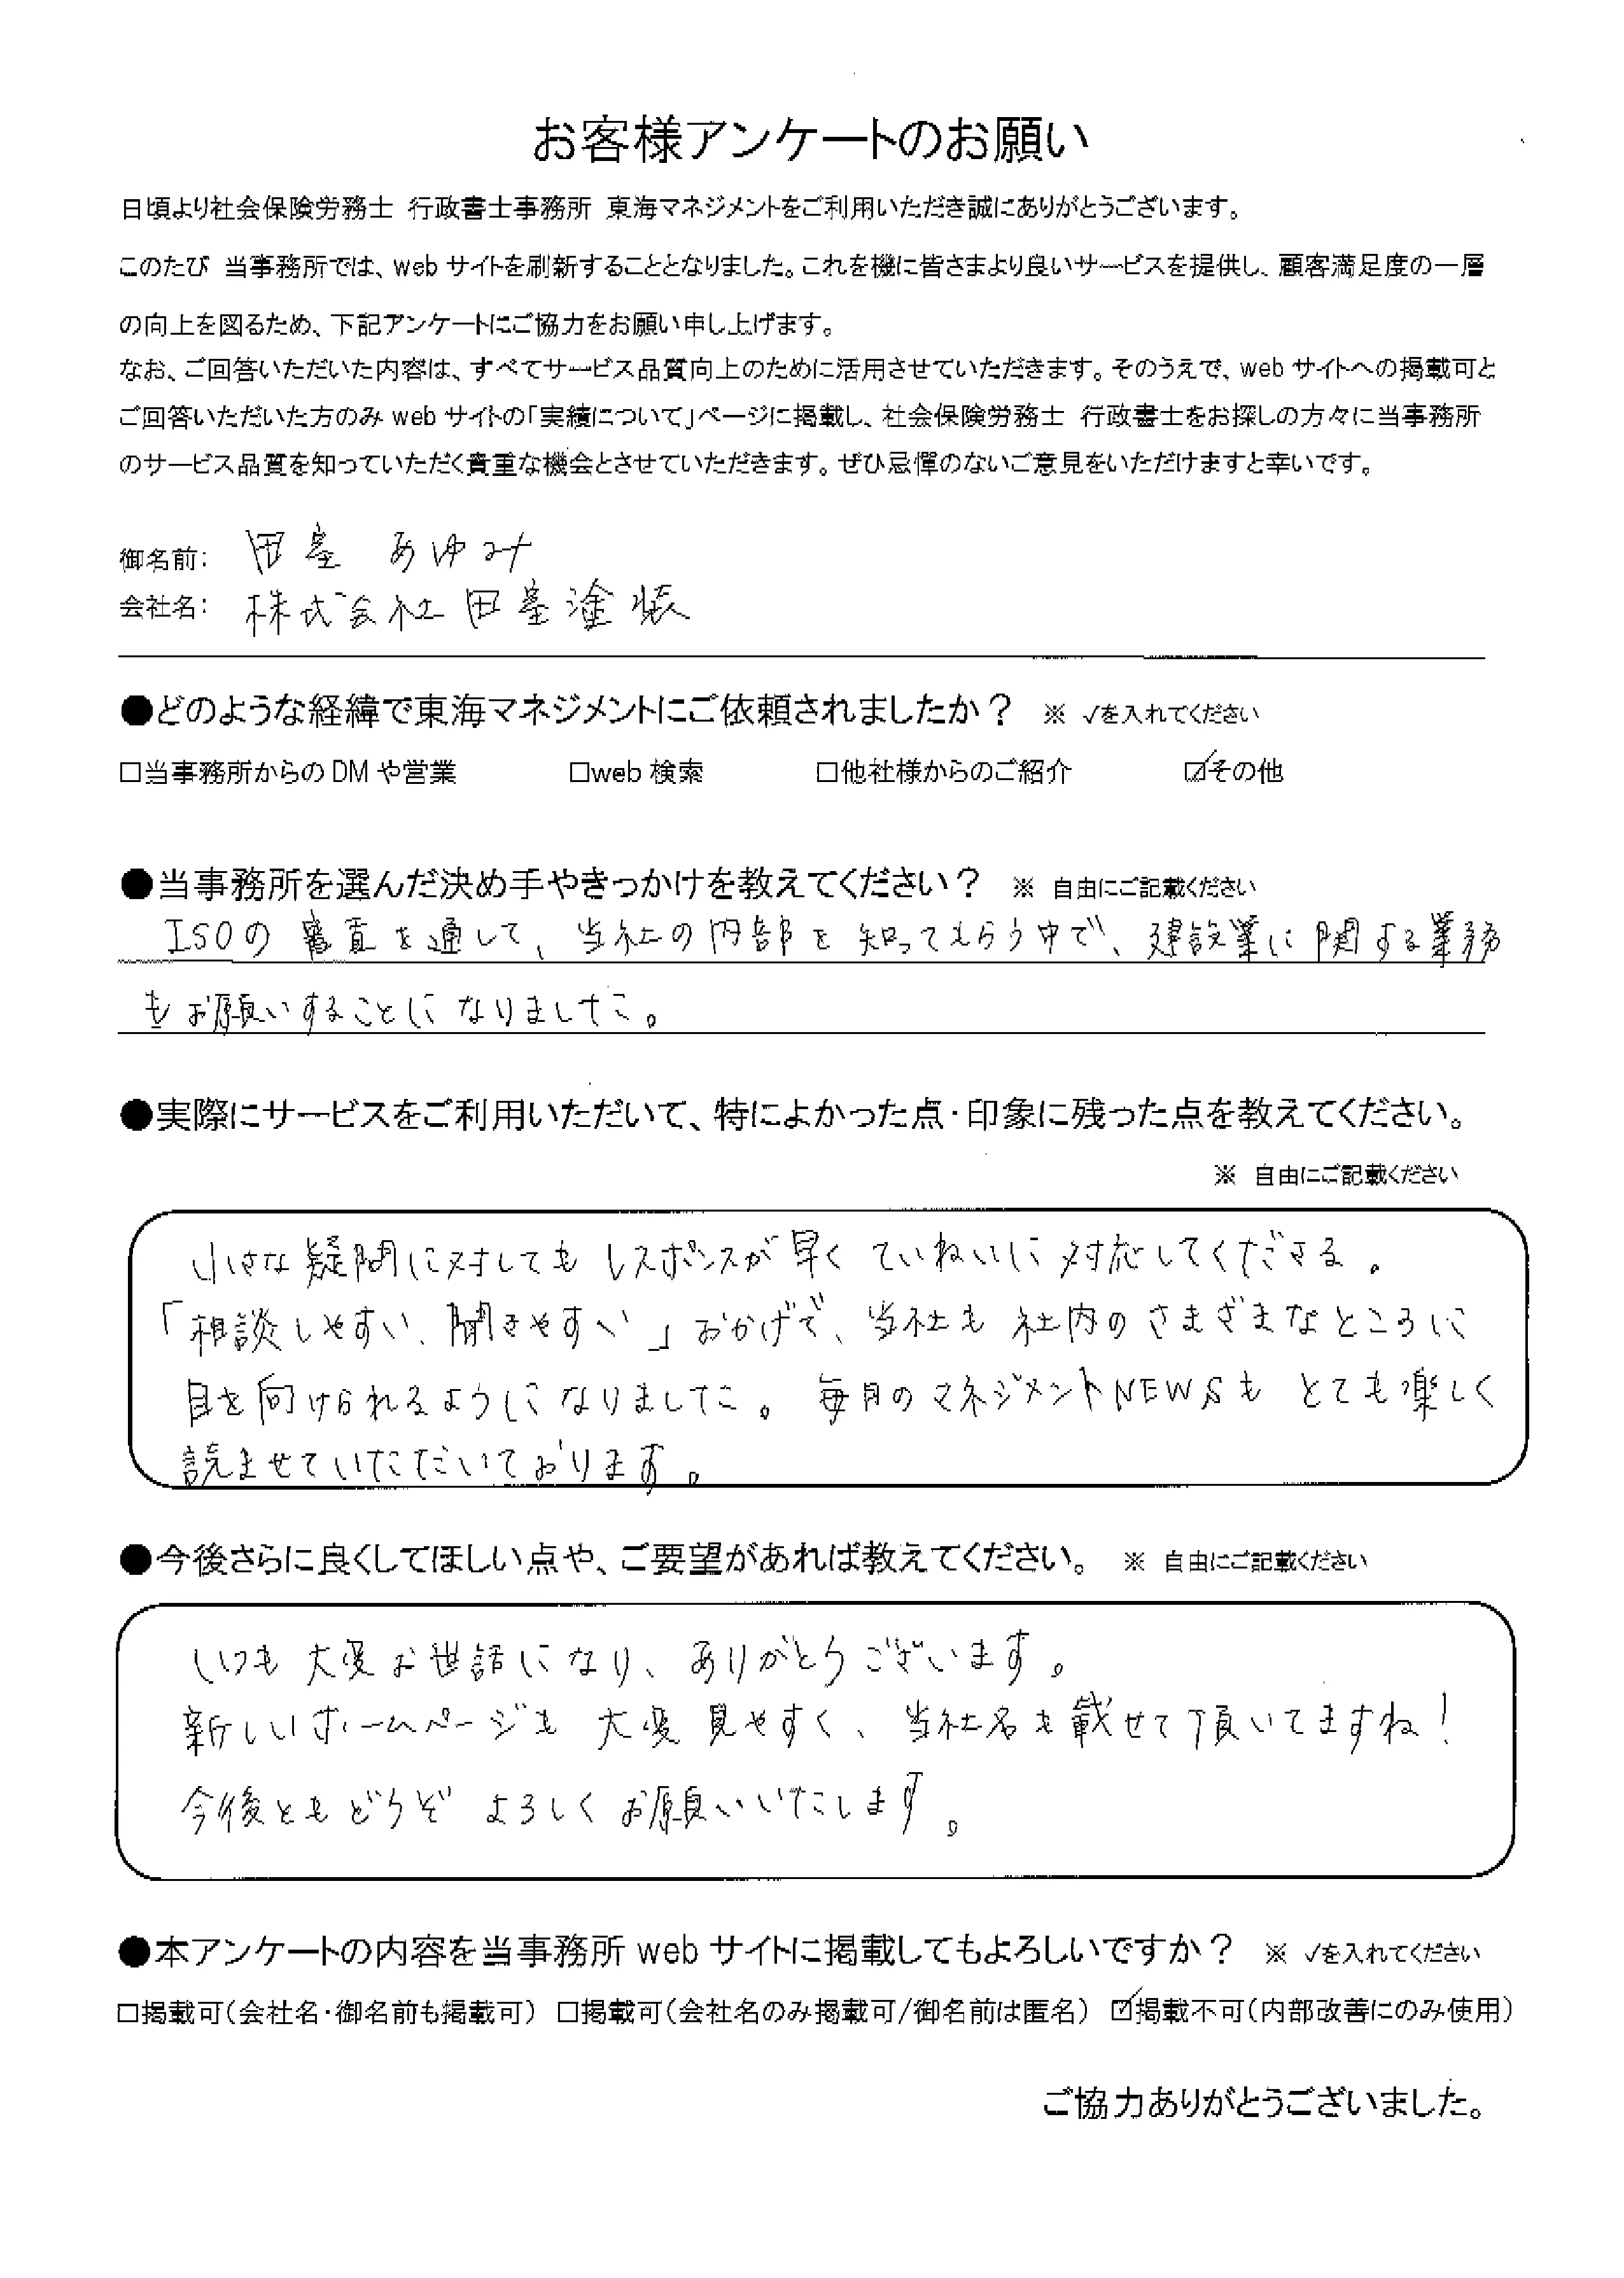 お客様アンケートのお願い
日頃より社会保険労務士 行政書士事務所 東海マネジメントをご利用いただき誠にありがとうございます。
このたび 当事務所では、web サイトを刷新することとなりました。これを機に皆さまより良いサービスを提供し、顧客満足度の一層
の向上を図るため、下記アンケートにご協力をお願い申し上げます。
なお、ご回答いただいた内容は、すべてサービス品質向上のために活用させていただきます。そのうえで、web サイトへの掲載可と
ご回答いただいた方のみ web サイトの「実績について」ページに掲載し、社会保険労務士 行政書士をお探しの方々に当事務所
のサービス品質を知っていただく貴重な機会とさせていただきます。ぜひ忌憚のないご意見をいただけますと幸いです。
御名前: 田墨 あゆみ
会社名: 株式会社田墨塗装
●どのような経緯で東海マネジメントにご依頼されましたか? ※ ✓を入れてください
□当事務所からの DM や営業 □web 検索 □他社様からのご紹介 ☑その他
●当事務所を選んだ決め手やきっかけを教えてください? ※ 自由にご記載ください
ISOの審査を通して、当社の内部を知ってもらう中で、建設業に関する業務
もお願いすることになりました。
●実際にサービスをご利用いただいて、特によかった点・印象に残った点を教えてください。
※ 自由にご記載ください
小さな疑問に対してもレスポンスが早くていねいに対応してくださる。
「相談しやすい、聞きやすい」おかげで、当社も社内のさまざまなところに
目を向けられるようになりました。毎月のマネジメントNEWSもとても楽しく
読ませていただいております。
●今後さらに良くしてほしい点や、ご要望があれば教えてください。 ※ 自由にご記載ください
いつも大変お世話になり、ありがとうございます。
新しいホームページも大変見やすく、当社名も載せて頂いてますね!
今後ともどうぞよろしくお願いいたします。
●本アンケートの内容を当事務所 web サイトに掲載してもよろしいですか? ※ ✓を入れてください
□掲載可(会社名・御名前も掲載可) □掲載可(会社名のみ掲載可/御名前は匿名) ☑掲載不可(内部改善にのみ使用)
ご協力ありがとうございました。